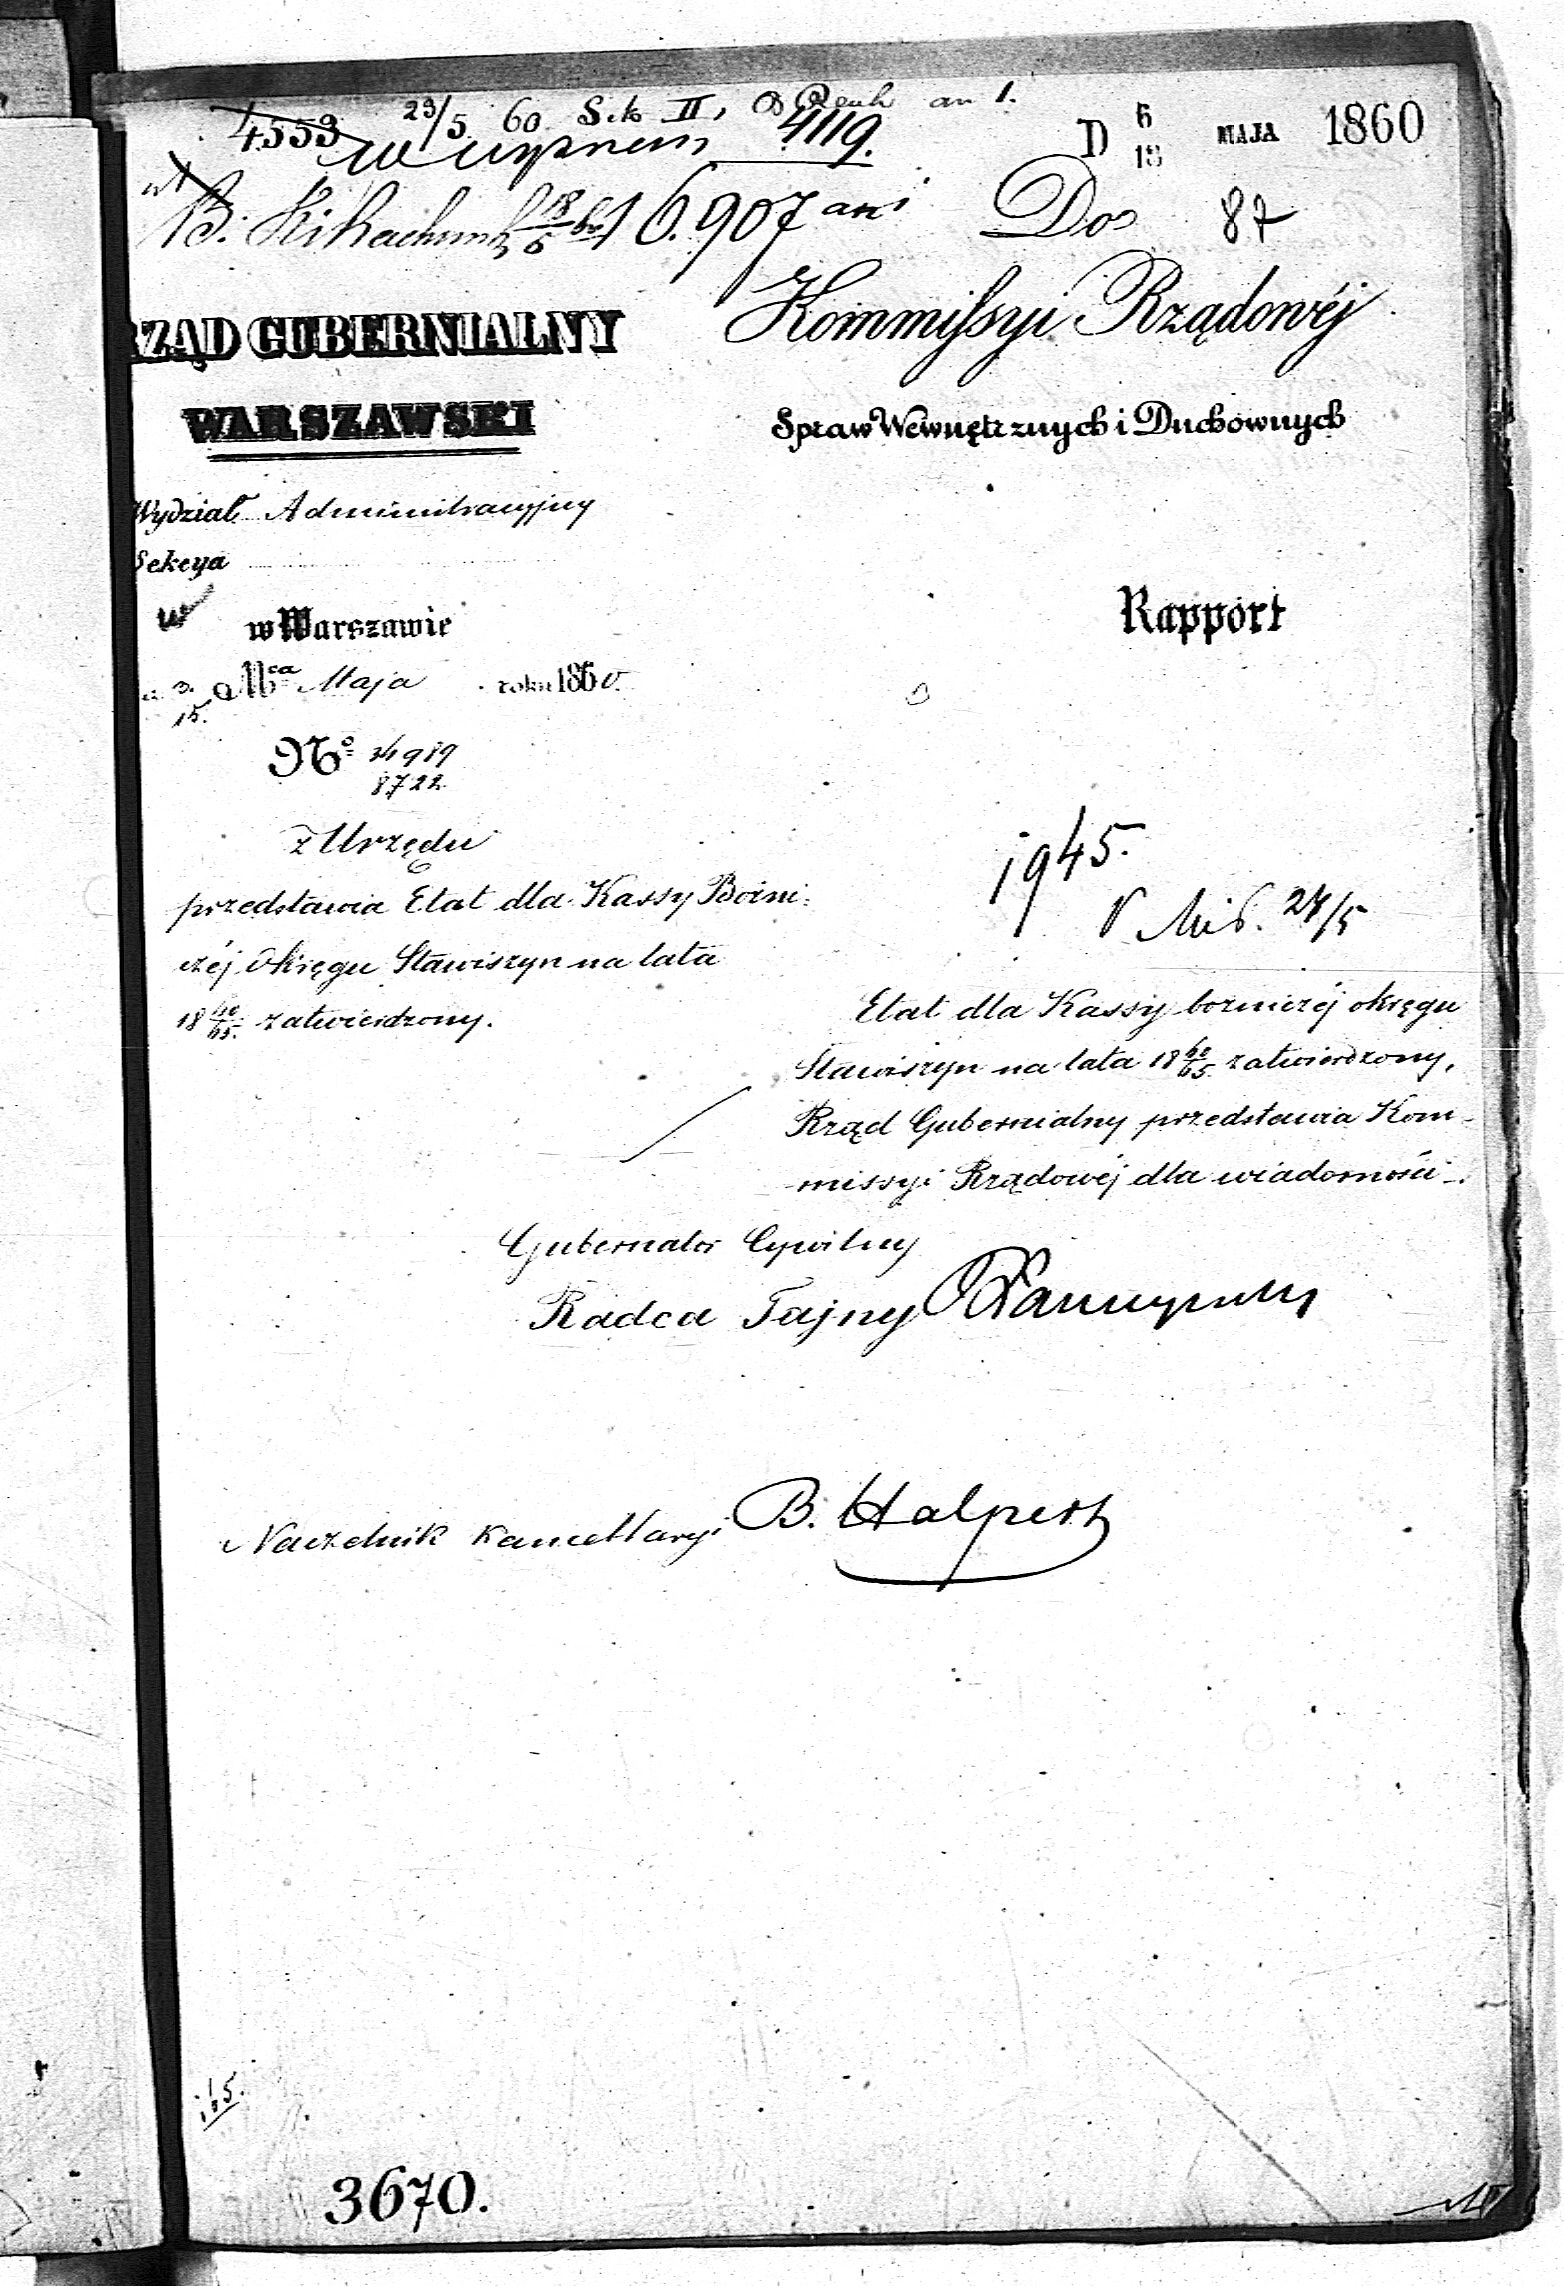 4553 23/5 60 II, an 1.
4119.
D 6/18 MAJA 1860
B. 18/5 6.907 Dos 87
RZĄD GUBERNIALNY
WARSZAWSKI
Kommissyi Rządowéj
Spraw Wewnętrznych i Duchownych
Wydział Administracyjny
Sekcya
w Warszawie
Rapport
3/15. Mca Maja roku 1860.
No 34989
8722
z Urzędu
przedstawia Etat dla Kassy Bożni:
czéj Okręgu Stawiszyn na lata
18 60/65. zatwierdzony.
1945.
27/5
Etat dla Kassy bożniczéj okręgu
Stawiszyn na lata 18 60/65 zatwierdzony,
Rząd Gubernialny przedstawia Kom-
missyi Rządowéj dla wiadomości.
Gubernator Cywilny
Radca Tajny
Naczelnik Kancellaryi B. Halpert
3670.